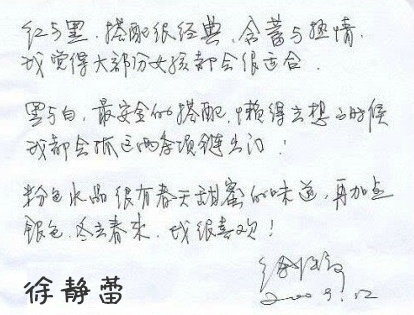 红与黑.搭配很经典,含蓄与热情.
我觉得大部份女孩都会很适合.
黑与白,最安全的搭配,懒得去想的时候
我都会抓这两条项链出门!
粉色水晶很有春天甜蜜的味道,再加点
银色,冬去春来.我很喜欢!
徐静蕾